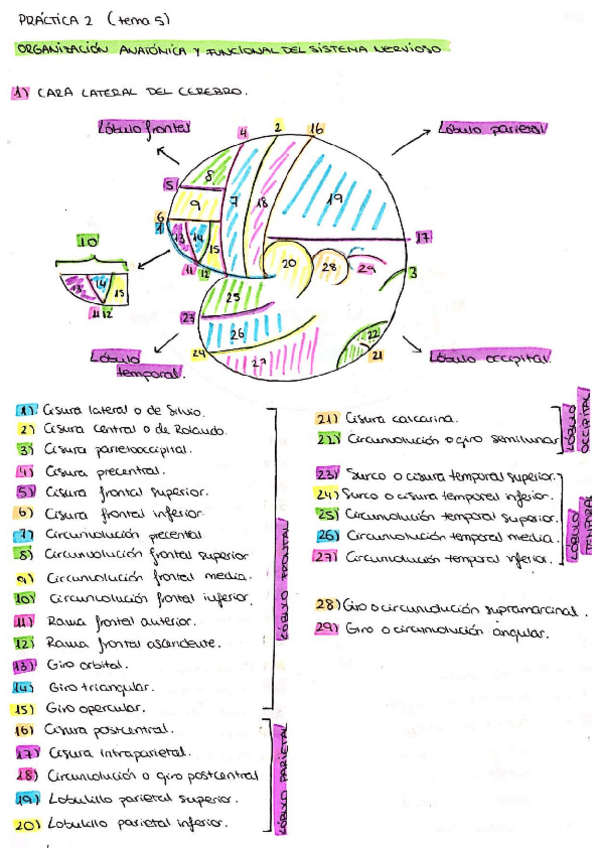 PRÁCTICA 2 (tema 5)
ORGANIZACIÓN ANATÓMICA Y FUNCIONAL DEL SISTEMA NERVIOSO
1) CARA LATERAL DEL CEREBRO.
Lóbulo frontal
4
2
16
Lóbulo parietal
8
5
9
7
18
19
6
1
13
14
15
17
10
11
12
20
28
29
3
13
14
15
25
11
12
23
26
22
24
27
21
Lóbulo temporal.
Lóbulo occipital.
1) Cisura lateral o de Silvio.
2) Cisura central o de Rolando.
3) Cisura parietooccipital.
4) Cisura precentral.
5) Cisura frontal superior.
6) Cisura frontal inferior
7) Circunvolución precental
8) Circunvolución frontal superior
9) Circunvolución frontal media.
10) Circunvolución frontal inferior.
11) Rama frontal anterior.
12) Rama frontal ascendente.
13) Giro orbital.
14) Giro triangular.
15) Giro opercular.
LÓBULO FRONTAL
16) Cisura postcentral.
17) Cisura intraparietal.
18) Circunvolución o giro postcentral
19) Lobulillo parietal superior.
20) Lobulillo parietal inferior.
LÓBULO PARIETAL
21) Cisura calcarina.
22) Circunvolución o giro semilunar
LÓBULO OCCIPITAL
23) Surco o cisura temporal superior.
24) Surco o cisura temporal inferior.
25) Circunvolución temporal superior.
26) Circunvolución temporal media.
27) Circunvolución temporal inferior.
LÓBULO TEMPORAL
28) Giro o circunvolución supramarcinal.
29) Giro o circunvolución angular.